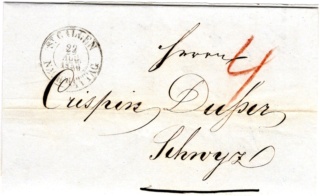 ST GALLEN
22
NACHMITTAG
Herrn
4
Crispin Dusser
Schwyz